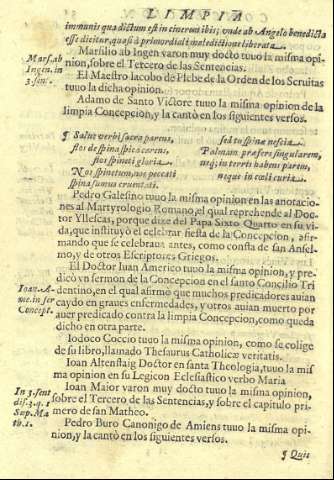 LIMPIA
immunis qua dictum est in cinerem ibis; onde ab Angelo benedicta
esse dicitur, quasi à primordiali maledictione liberata.
Marsilio ab Ingen varon muy docto tuuo la misma opi-
nion, sobre el Tercero de las Sentencias.
Mars. ab
Ingen. in
3. sen.
El Maestro Iacobo de Plebe de la Orden de los Seruitas
tuuo la dicha opinion.
Adamo de Santo Victore tuuo la misma opinion de la
limpia Concepcion, y la cantò en los siguientes versos.
¶ Salue verbi sacra parens,
flos de spina spica carens,
flos spineti gloria.
Nos spinetum, nos peccati
spina sumus cruentati.
sed tu spinæ nescia.
Palmam præfers singularem,
neq; in terris habens parem,
neque in cœli curia.
Pedro Galesino tuuo la misma opinion en las anotacio-
nes al Martyrologio Romano, el qual reprehende al Doc-
tor Yllescas, porque dize del Papa Sixto Quarto en su vi-
da, que instituyò el celebrar fiesta de la Concepcion, afir-
mando que se celebraua antes, como consta de san Ansel-
mo, y de otros Escriptores Griegos.
El Doctor Iuan Americo tuuo la misma opinion, y pre-
dicò vn sermon de la Concepcion en el santo Concilio Tri
dentino, en el qual afirmò que muchos predicadores auian
caydo en graues enfermedades, y otros auian muerto por
auer predicado contra la limpia Concepcion, como queda
dicho en otra parte.
Ioan. A-
me. in ser
Concept.
Iodoco Coccio tuuo la misma opinion, como se colige
de su libro, llamado Thesaurus Catholicæ veritatis.
Ioan Altenstaig Doctor en santa Theologia, tuuo la mis
ma opinion en su Legicon Eclesiastico verbo Maria
Ioan Maior varon muy docto tuuo la misma opinion,
sobre el Tercero de las Sentencias, y sobre el capitulo pri-
mero de san Matheo.
In 3. sent
dis. 3. q. 1
Sup. Ma
th. 1.
Pedro Buro Canonigo de Amiens tuuo la misma opi-
nion, y la cantò en los siguientes versos.
¶ Quis